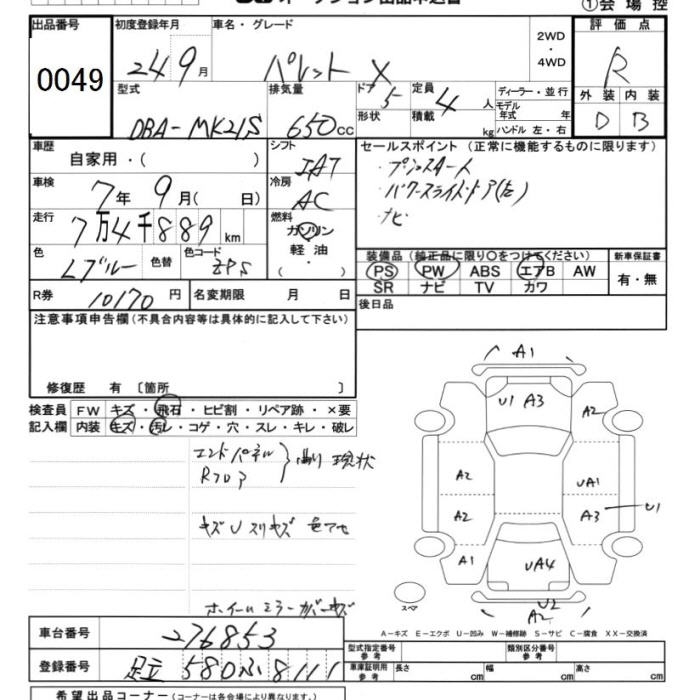 ①会場控
出品番号
0049
初度登録年月
24 9月
車名・グレード
パレット X
2WD
・
4WD
評価点
R
外装 内装
D B
型式
DBA-MK21S
排気量
650cc
ドア 5
形状
定員 4人
積載 kg
ディーラー・並行
モデル年式 年
ハンドル 左・右
車歴
自家用・( )
シフト
IAT
車検
7年9月(日)
冷房
AC
走行
7万4千889km
燃料
ガソリン
軽油
・( )
色
Lブルー
色替
色コード
ZPS
R券 10170円
名変期限 月 日
セールスポイント(正常に機能するものに限ります)
・プッシュスタート
・パワースライドドア(左)
・ナビ
装備品(純正品に限り〇をつけてください)
PS PW ABS エアB AW
SR ナビ TV カワ
新車保証書
有・無
後日品
注意事項申告欄(不具合内容等は具体的に記入して下さい)
修復歴 有〔箇所 〕
検査員記入欄
FW キズ・飛石・ヒビ割・リペア跡・×要
内装 キズ・汚レ・コゲ・穴・スレ・キレ・破レ
エンドパネル
Rフロア
曲り 現状
キズU スリキズ 色アセ
ホイール ミラーカバーキズ
A1
U1 A3
A2
A2
UA1
A2
A3
U1
A1
UA4
U2
A2
スペア
A-キズ E-エクボ U-凹み W-補修跡 S-サビ C-腐食 XX-交換済
車台番号
276853
登録番号
足立 580 ふ 8111
型式指定番号
参考
類別区分番号
参考
車庫証明用
参考
長さ cm
幅 cm
高さ cm
希望出品コーナー(コーナーは各会場により異なります)